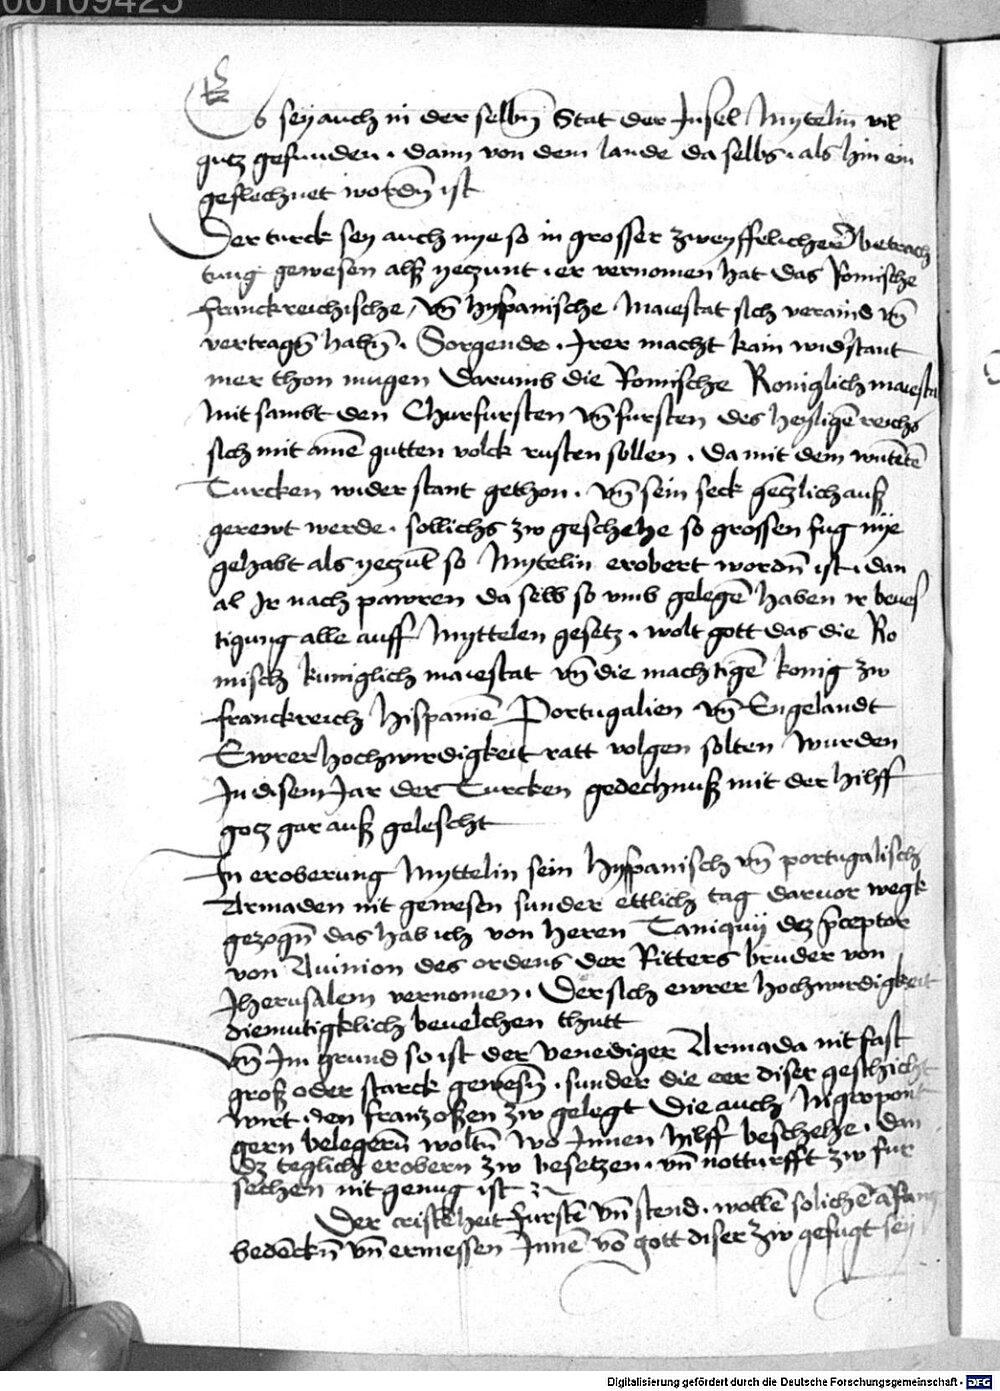 00109425
Es sey auch in der selbn̄ Stat der Insel Mytelin vil
gutz gefunden . dann von dem lande da selbs . als hin ein
geflechnet wordn̄ ist
Der turck sey auch nye so in grosser zweyffelicher betrach
tung gewesen alß yeczunt . er vernomen hat das Romische
franckreichische / vn̄ hyspanische Maiestat sich veraind vn̄
vertragn̄ habn̄ . Sorgende . Irer macht kain widerstant
mer thon mugen Darumb die Romische Koniglich maiesta
Mit sambt den Churfursten vn̄ fursten des heyligē reichs
sich mit ainē gutten volck rusten sollen . da mit dem wutētē
Turcken wider stant gethon . vn̄ sein seck genczlich auß
gerewt werde . sollichs zw geschehe so grossen fug nye
gehabt als yeczūt so Mytelin erobert wordn̄ ist . dan
al Ir nach pawren da selb so vmb gelegē haben ir beues
tigung alle auff Myttelen gesetz . wolt gott das die Ro
misch kuniglich maiestat vn̄ die machtigē konig zw
franckreich Hispaniē Portugalien vn̄ Engelandt
Ewrer hochwirdigkeit ratt volgen solten wurden
In disem Jar der Turcken gedechnuß mit der hilff
gotz gar auß gelescht
In eroberung Myttelin sein hyspanisch vn̄ portugalisch
Armaden nit gewesen sunder ettlich tag daruor wegk
gezogn̄ das hab ich von heren Taniquij dez p̄ceptor
von Auinion des ordens der Ritters bruder von
Jherusalem vernomen . Der sich ewrer hochwirdigkeit
diemutigklich beuelchen thutt
vn̄ Im grund so ist der Venediger Armada nit fast
groß oder starck gewesn̄ . sunder die eer diser geschicht
wirt . den franzoßen zw gelegt Die auch Nigropont
gern belegern̄ woltn̄ wo Innen hilff beschehe . dan
dz teglich erobern zw besetzen . vn̄ notturfft zw fur
sechen nit genug ist
Der cristēheit furstē vn̄ stend . wollē solichē āfang
bedēckn̄ vn̄ ermessen Innē vō gott diser zw gefugt sey
Digitalisierung gefördert durch die Deutsche Forschungsgemeinschaft - DFG